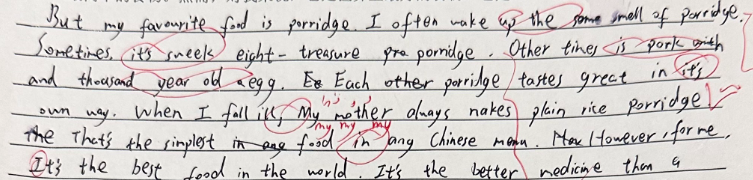 But my favourite food is porridge. I often wake up the some smell of porridge.
Sometimes, it's sweek eight-treasure pra porridge. Other times is pork with
and thousand year old egg. Each other porridge tastes great in it's
own way. When I fall ill, My mother always makes plain rice porridge
my my my
The That's the simplest in food in any Chinese menu. However, for me,
It's the best food in the world. It's the better medicine than a